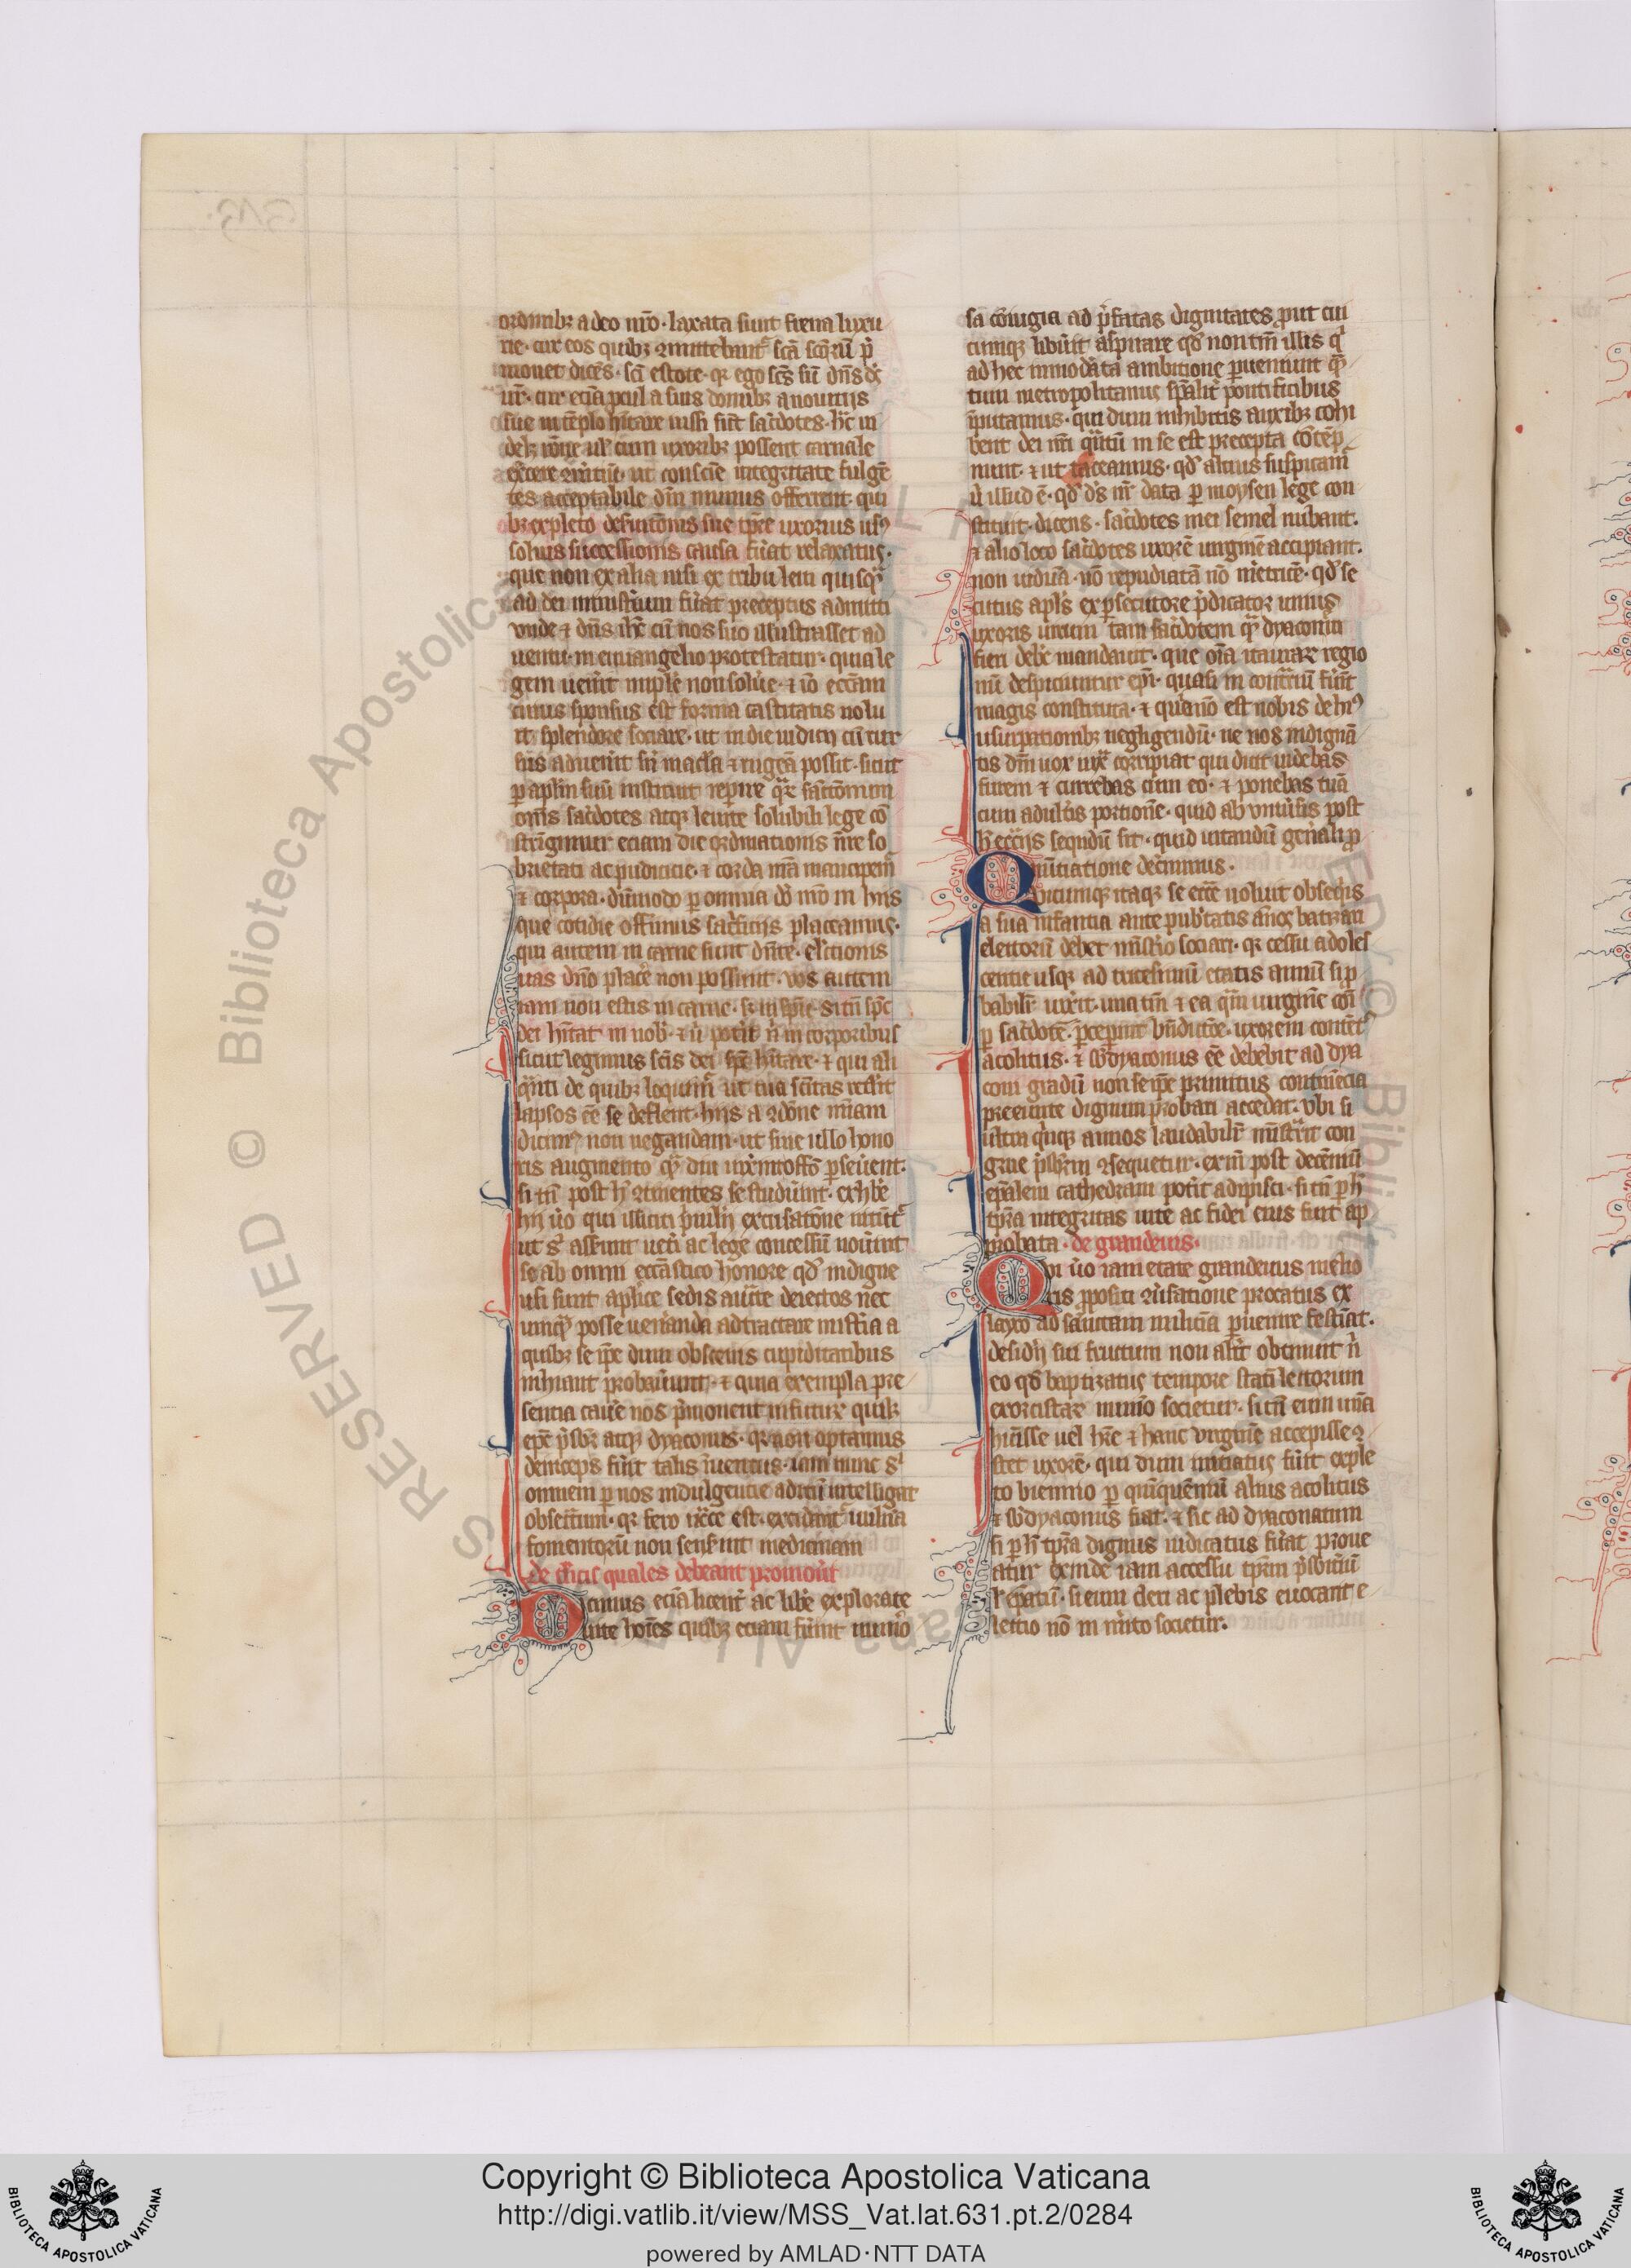 ordinibꝫ a deo nr̄o · laxata sunt frena luxu
rie · cur eos quibꝫ ꝯmittebant᷑ sc̄a sc̄oꝝ p̄
monet dicēs · sc̄i estote · qꝛ ego sc̄s sū dn̄s dꝰ
ur̄ · cur ecīa ꝓcul a suis domibꝫ anno uicis
sue in tēplo hītare iussi sūt sac̓dotes ·
uxoribꝫ possent carnale
ut consciē integritate fulgē
tes acceptabile dn̄o munus offerrent · qui
bꝫ expleto
solius successionis causa fu̓at relaxatus ·
que non ex alia nisi ex tribu leui quisqͣ
ad dei ministr̓ium fu̓at preceptus admitti
vnde ⁊ dn̄s ih̄c cū nos suo illustrasset ad
uentu · in euuangelio protestatur · quia le
gem uen̓it inplē non solue̓ · ⁊ iō ecc̄am
cuius sponsus est forma castitatis uolu
it splendore sociare · ut in die iudicij cū rur
sus aduen̓it sn̄ macl̄a ⁊ ruga possit · sicut
ꝑ apl̄m suū instituit repire
om̄s sac̓dotes atqꝫ leuite solubili lege cō
stringimur eciam die ordinationis nr̄e so
brietati ac pudicicie · ⁊ corda nr̄a mancipem᷑
⁊ corpora · dūmodo ꝑ omnia dō nr̄o in hijs
que cotidie offerimus sac̓ficijs placeamus ·
qui autem in carne sunt dn̄te · el̄ctionis
uas dn̄o place̓ non possunt · vos autem
iam non estis in carne · sꝫ in sp̄u · si tn̄ sp̄c
dei hītat in uob̄ · ⁊ u̓ potit n̄ in corporibus
sicut legimus sc̄is dei sp̄c hītare · ⁊ qui ali
qͣnti de quibꝫ loquim᷑ ut tua sc̄itas rettu̓it
lapsos ēē se deflent · hijs a ꝯdōne mīam
dicimꝰ non negandam · ut sine ullo hono
ris augmento qͣdiu uixint offō ꝑseuent ·
si tn̄ post h̄ ꝯtinentes se studu̓int · exhibe̓
hij u̓o qui illiciti p̓uilegij excusatōne nitunt᷑
ut sͥ asserant uet̓i ac lege concessū nou̓int
se ab omni ecc̄astico honore qͦ indigne
usi sunt aplīce sedis auctē deiectos nec
umqͣ posse uen̓anda adtractare mist̓ia a
quibꝫ se ip̄e dum obscenis cupiditatibus
inhiant p̓uau̓unt · ⁊ quia exempla pre
sencia caue̓ nos p̓monent in futurꝫ quilꝫ
ep̄c p̓sbr̄ atqꝫ dyaconus · qͦ non optamus
deinceps fu̓it talis inuentus · iam nunc sͥ
omnem ꝑ nos indulgentie aditū intelligat
obseratum · qꝛ ferro nēcē est · excidant᷑ uuln̓a
fomentorū non sens̓int medicinam
de cl̓icis quales debeant promou̓i
Dicimus ecīa licent̓ ac libe̓ explorate
uite hoīes quibꝫ eciam fu̓int nūmo̓
sa cōiugia ad p̓fatas dignitates prout cui
cumqꝫ libu̓it aspirare qͦ non tm̄ illis qͥ
ad hec inmodata ambitione ꝑueniunt qͣ
tum metropolitanis spālit̓ pontificibus
īputamus · qui dum inhibitis ausibꝫ cohi
bent dei nr̄i qͣntū in se est precepta cōtēp
nunt · ⁊ ut taceamus · qͦ altius suspicam᷑
u̓ illud ē · qͦ ds̄ nr̄ data ꝑ moysen lege con
stituit · dicens · sac̓dotes mei semel nubant ·
⁊ alio loco sac̓dotes uxorē uirginē accipiant ·
non uiduā · nō repudiatā nō me̓tricē · qͦ se
cutus apl̄s ex ꝑsecutore p̓dicator unius
uxoris uirum tam sac̓dotem qͣ dyaconū
fieri debe̓ mandauit · que oīa ita urāꝝ regio
nū despiciuntur epī · quasi in cont̓riū fu̓int
magis constituta · ⁊ quia nō est nobis de hijꝰ
usurpationibꝫ negligendū · ne nos indignā
tis dn̄i uox iuxͣ corripiat qui dicit uidebas
furem ⁊ currebas cum eo · ⁊ ponebas tuā
cum adult̓is portionē · quid ab vniu̓sis post
h̄ ecc̄ijs seqndū sit · quid uitandū gen̓ali ꝓ
nūtiatione dec̓nimus ·
Quicumqꝫ itaqꝫ se ecc̄e uoluit obseqͥis
a sua infantia ante pub̓tatis ānos batizari
⁊ lectorū debet mist̓io sociari · qꝛ cessu adoles
centie usqꝫ ad tricesimū etatis annū si ꝓ
babilit̓ uix̓it · una tm̄ ⁊ ea qͣm uirginē cōī
ꝑ sac̓dotē p̓cepint bn̄dictōe · uxorem content̓
acolitus · ⁊ sb̄dyaconus eē debebit ad dya
coni gradū non se ip̄e primitus continēcia
preeunte dignum probari accedat · vbi si
ultra qͥnqꝫ annos laudabilit̓ mīst̓rit con
grue p̓sbr̄m ꝯsequetur · exin̄ post decēniū
ep̄alem cathedram pot̓it adipisci · si tn̄ ꝑ h̄
tpr̄a integritas uite ac fidei eius fu̓it ap
probata · de grandeuis ·
Qui u̓o iam etate grandeuus melio
ris propositi ꝯu̓satione procatus ex
layco ad sacratam miliciā ꝑuenire festīat ·
desid̓ij sui fructum non alit̓ obtinunt n̄
eo qͦ baptizatus tempore statī lectorum
exorcistaꝝ nūmo̓ societur · si tn̄ eum unā
habuisse uel hr̄e ⁊ hanc virginē accepisse ꝯ
stet uxorē · qui dum initiatus fu̓it exple
to biennio ꝑ qͥnquenniū alius acolitus
⁊ sb̄dyaconus fiat · ⁊ sic ad dyaconatum
si ꝑ h̄ tpr̄a dignus iudicatus fu̓at proue
atur exinde iam accessu tpr̄m p̓sbit̓iū
ł ep̄atū · si eum cleri ac plebis euocant e
lectio nō in mīto societur ·
RESERVED © Biblioteca Apostolica
Copyright © Biblioteca Apostolica Vaticana
http://digi.vatlib.it/view/MSS_Vat.lat.631.pt.2/0284
powered by AMLAD·NTT DATA
BIBLIOTECA APOSTOLICA VATICANA
BIBLIOTECA APOSTOLICA VATICANA